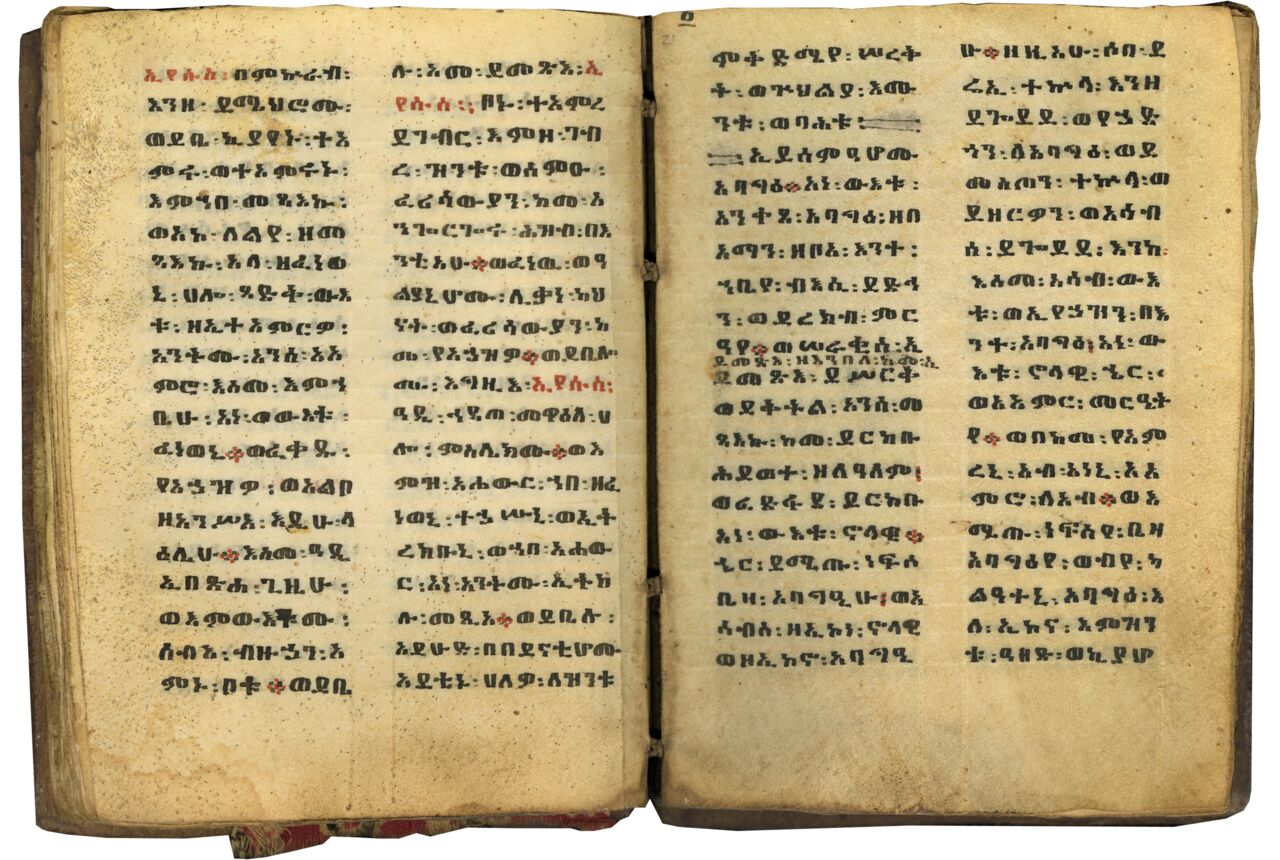 ኢየሱስ፡በምኵራብ፡
እንዘ፡ይሜህሮሙ፡
ወይቤ፡ኪያየኑ፡ተአ
ምሩ፡ወተአምሩኑ፡
እምኀበ፡መጻእኩ፡
ወአኮ፡ለልየ፡ዘመ
ጻእኩ፡አላ፡ዘፈነወ
ኒ፡ሀሎ፡ጻድቅ፡ውእ
ቱ፡ዘኢተአምርዎ፡
አንትሙ፡አንሰ፡አአ
ምሮ፡እስመ፡እምኀ
ቤሁ፡አነ፡ወውእቱ፡
ፈነወኒ።ወፈቀዱ፡
የአኀዝዎ፡ወአልቦ
ዘአንሥአ፡እዴሁ፡ላ
ዕሌሁ።እስመ፡ዓዲ
ኢበጽሐ፡ጊዜሁ፡
ወእምውእቶሙ፡
ሰብእ፡ብዙኃን፡አ
ምኑ፡ቦቱ።ወይቤ
ሉ፡እመ፡ይመጽእ፡ኢ
የሱስ፡ቦኑ፡ተአምረ
ይገብር፡እምዘ፡ገብ
ረ፡ዝንቱ፡ወሰምዑ፡
ፈሪሳውያን፡ከመ፡አ
ንጐርጐሩ፡ሕዝብ፡በእ
ንቲአሁ።ወፈነዉ፡ወዓ
ልያኒሆሙ፡ሊቃነ፡ካህ
ናት፡ወፈሪሳውያን፡ከ
መ፡የአኀዝዎ።ወይቤሎ
ሙ፡እግዚእ፡ኢየሱስ፡
ዓዲ፡ኅዳጠ፡መዋዕለ፡ሀ
ሎ፡ምስሌክሙ።ወእ
ምዝ፡አሐውር፡ኀበ፡ዘፈ
ነወኒ፡ተኃሥሡኒ፡ወኢት
ረክቡኒ፡ወኀበ፡አሐው
ር፡አነ፡አንትሙ፡ኢትክ
ሉ፡መጺአ።ወይቤሉ፡
አይሁድ፡በበይናቲሆሙ
አይቴኑ፡ሀለዎ፡ለዝንቱ
21
ምትድሜየ፡ሠረቅ
ት፡ወጕህልያ፡እሙ
ንቱ፡ወባሕቱ፡
ኢይሰምዓሆሙ
አባግዕ።አነ፡ውእቱ፡
አንቀጸ፡አባግዕ፡ዘበ
አማን፡ዘቦአ፡እንተ፡
ኀቤየ፡ብእሲ፡ይድኅ
ን፡ወይረክብ፡ምር
ዓየ።ወሠራቂሰ፡ኢ
ይመጽእ፡ዘእንበለ፡ከመ፡ኢ
ይመጽእ፡ይሥርቅ
ወይቅትል፡አንሰ፡መ
ጻእኩ፡ከመ፡ይርከቡ
ሕይወተ፡ዘለዓለም፡
ወፈድፋደ፡ይርከቡ
አነ፡ውእቱ፡ኖላዊ።
ኄር፡ይሜጡ፡ነፍሶ
ቤዛ፡አባግዒሁ፡ወአ
ሳብሰ፡ዘኢኮነ፡ኖላዊ
ወዘኢኮኖ፡አባግዒ
ሁ።ዘዚአሁ፡ሶበ፡ይ
ሬኢ፡ተኵላ፡እንዘ
ይጐይይ፡ወየኃድ
ጎን፡ለአባግዕ፡ወይ
መስጦን፡ተኵላ፡ወ
ይዘርዎን፡ወአሳብ
ሰ፡ይጐይይ፡እንከ፡
እስመ፡አሳብ፡ውእ
ቱ፡ወኢየኃዝን፡በእ
ንተ፡አባግዕ፡አነ፡ው
እቱ፡ኖላዊ፡ኄር፡
ወአአምር፡መርዔት
የ።ወበከመ፡የአም
ረኒ፡አብ፡አነኒ፡አአ
ምሮ፡ለአብ።ወእ
ሜጡ፡ነፍስየ፡ቤዛ
አባግዕየ፡ወብየ፡ካ
ልዓተኒ፡አባግዕ፡እ
ለ፡ኢኮና፡እምዝን
ቱ፡ዓፀድ፡ወኪያሆ